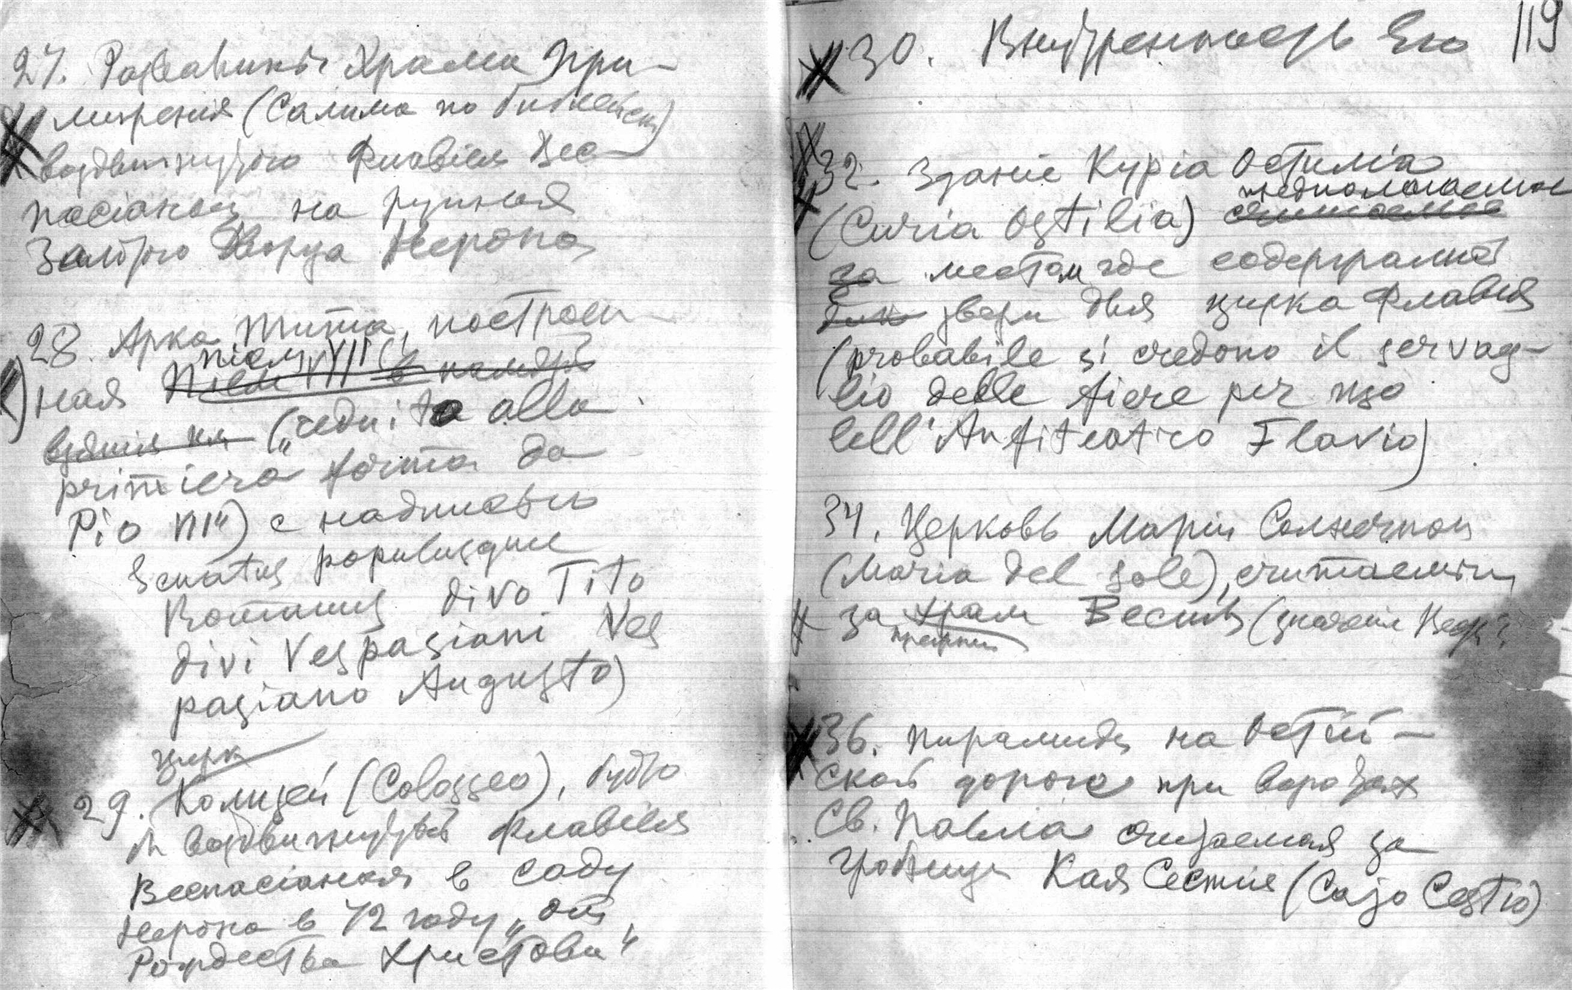 27. Развалины Храма При-
миренія (Салима по библейски)
воздвигнутого Флавіем Вес-
пасіаном на руинах
Золотого Дворца Нерона
28. Арка Тита, построен-
піем VII
ная Піем VII в память
взятия („reduita alla
primiera forma da
Pio VII“) с надписью
Senatus populusque
Romanus divo Tito
divi Vespasiani Ves
pasiano Augusto)
цирк
29. Колизей (Colosseo), будто
воздвигнутый Флавіем
Веспасіаном в саду
Нерона в 72 году „от
Рождества Христова“
119
30. Внутренность Его
32. Зданіе Куріа Остиліа
предполагаемое
(Curia Ostilia) считаемое
за местом где содержались
звери для цирка Флавія
(probabile si credono il servag-
lio delle fiere per uso
dell'Anfiteatro Flavio)
34. Церковь Маріи Солнечной
(Maria del sole), считаемый
за храм Весты
36. Пирамида на Остій-
ской дороге при воротах
Св. Павла считаемая за
гробницу Кая Сестія (Cajo Cestio)